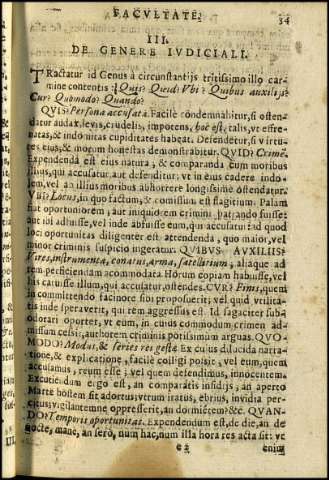 FACVLTATE.
34
III.
DE GENERE IVDICIALI.
TRactatur id Genus à circunstantijs tritissimo illo car-
mine contentis: Quis? Quid? Vbi? Quibus auxilijs?
Cur? Quomodo? Quando?
QVIS? Persona accusata. Facilè condemnabitur, si osten-
datur audax, levis, crudelis, impotens, hoc est, talis, vt effre-
natas, & indomitas cupiditates habeat. Defendetur, si virtu-
res eius, & morum honestas demonstrabitur. QVID? Crimẽ.
Expendenda est eius natura, & comparanda cum moribus
illius, qui accusatur, aut defenditur; vt in eius cadere indo-
lem, vel an illius moribus abhorrere longissimè ostendatur.
VBI? Locus, in quo factum, & comissum est flagitium. Palam
fiat oportuniorem, aut iniquiorem crimini patrando fuisse:
aut ibi adfuisse, vel inde abfuisse eum, qui accusatur: ad quod
loci oportunitas diligenter est attendenda, quo maior, vel
minor criminis suspicio ingeratur. QVIBVS AVXILIIS?
Vires, instrumenta, conatus, arma, satellitium, aliaque ad
rem perficiendam accommodata. Horum copiam habuisse, vel
his caruisse illum, qui accusatur, ostendes. CVR? Finis, quem
in committendo facinore sibi proposuerit; vel quid vtilita-
tis inde speraverit, qui rem aggressus est. Id sagaciter subo-
dorari oportet, vt eum, in cuius commodum crimen ad-
missum celsit, authorem criminis potissimum arguas. QVO-
MODO? Modus, & series rei gestæ. Ex cuius dilucida narra-
tione, & explicatione, facilè colligi posse, vel eum, quem
accusamus, reum esse; vel quem defendimus, innocentem.
Excutiendum ergo est, an comparatis insidijs, an aperto
Marte hostem sit adortus; vtrum iratus, ebrius, invidia per-
citus; vigilantemne oppresserit, an dormiẽtem? &c. QVAN-
DO? Temporis oportunitas. Expendendum est, de die, an de
nocte, mane, an serò, num hac, num illa hora res acta sit: vt
enim